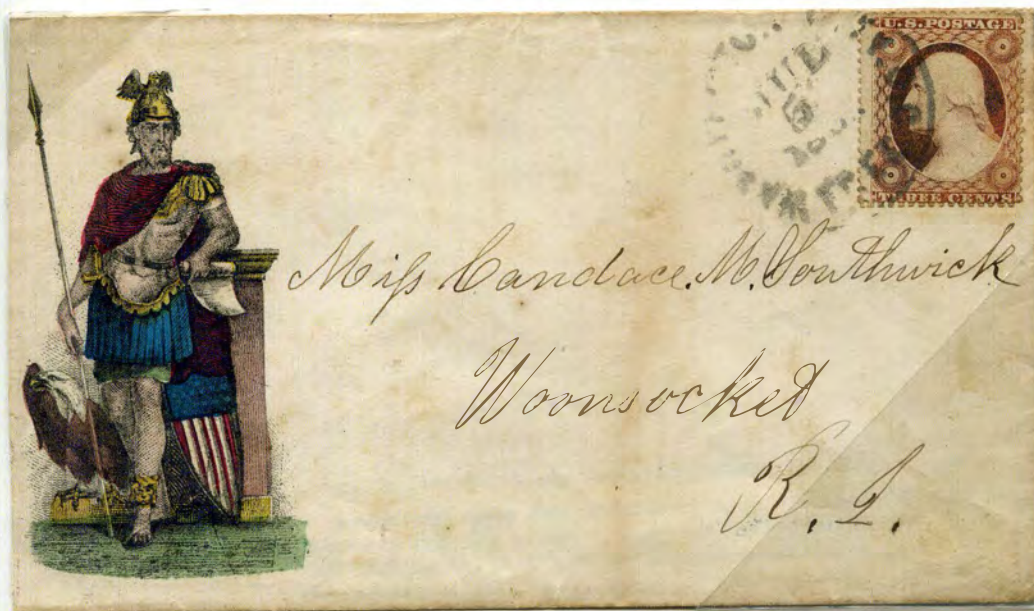 U.S. POSTAGE
JUL
5
THREE CENTS
Miss Candace. M. Southwick
Woonsocket
R. I.